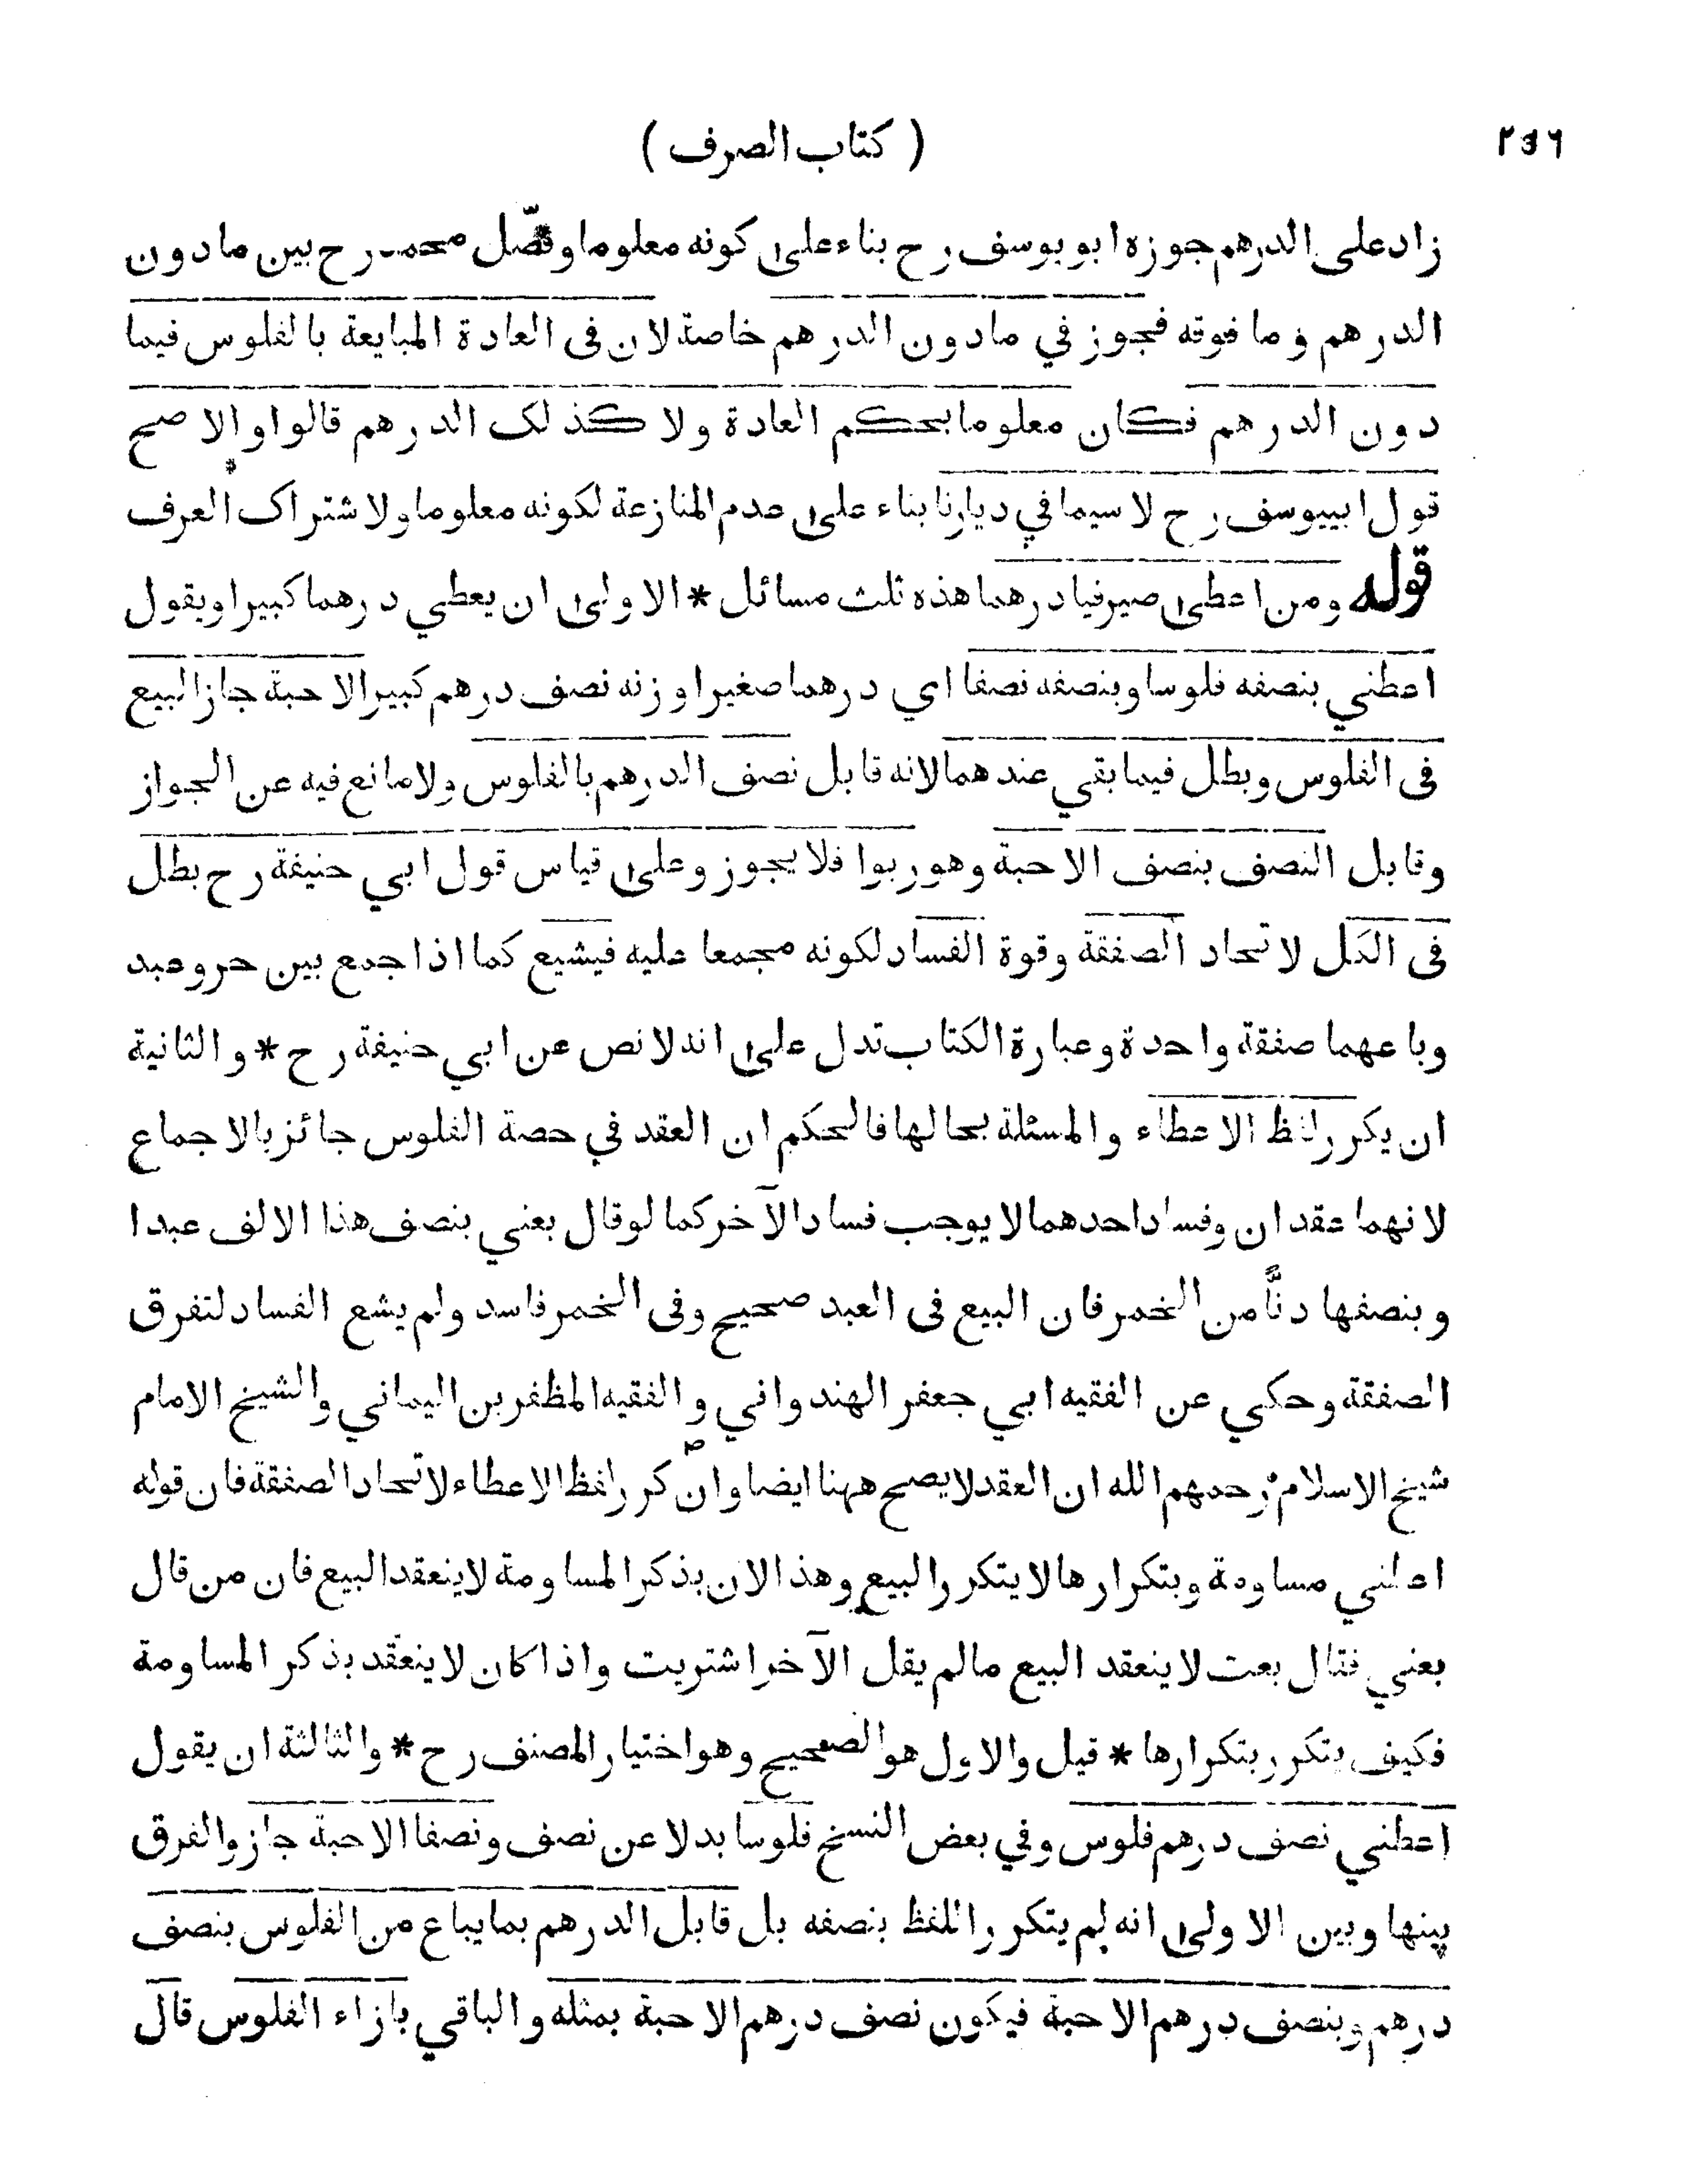 ( كتاب الصرف )
زاد على الدرهم جوزه ابو يوسف رح بناء على كونه معلوما وفصّل محمد رح بين ما دون
الدرهم وما فوقه فيجوز في ما دون الدرهم خاصة لان فى العادة المبايعة بالفلوس فيما
دون الدرهم فكان معلوما بحكم العادة ولا كذلك الدرهم قالوا والاصح
قول ابييوسف رح لا سيما في ديارنا بناء على عدم المنازعة لكونه معلوما ولاشتراك العرف
قوله ومن اعطى صيرفيا درهما هذه ثلث مسائل * الاولى ان يعطي درهما كبيرا ويقول
اعطني بنصفه فلوسا وبنصفه نصفا اي درهما صغيرا وزنه نصف درهم كبير الا حبة جاز البيع
فى الفلوس وبطل فيما بقي عندهما لانه قابل نصف الدرهم بالفلوس ولا مانع فيه عن الجواز
وقابل النصف بنصف الا حبة وهو ربوا فلا يجوز وعلى قياس قول ابي حنيفة رح بطل
فى الكل لاتحاد الصفقة وقوة الفساد لكونه مجمعا عليه فيشيع كما اذا جمع بين حر وعبد
وباعهما صفقة واحدة وعبارة الكتاب تدل على انه لا نص عن ابي حنيفة رح * والثانية
ان يكرر لفظ الاعطاء والمسئلة بحالها فالحكم ان العقد في حصة الفلوس جائز بالاجماع
لانهما عقدان وفساد احدهما لا يوجب فساد الآخر كما لو قال بعني بنصف هذا الالف عبدا
وبنصفها دنًّا من الخمر فان البيع فى العبد صحيح وفى الخمر فاسد ولم يشع الفساد لتفرق
الصفقة وحكي عن الفقيه ابي جعفر الهندواني والفقيه المظفر بن اليماني والشيخ الامام
شيخ الاسلام رحمهم الله ان العقد لا يصح ههنا ايضا وان كرر لفظ الاعطاء لاتحاد الصفقة فان قوله
اعطني مساومة وبتكرارها لا يتكرر البيع وهذا لان بذكر المساومة لا ينعقد البيع فان من قال
بعني فقال بعت لا ينعقد البيع مالم يقل الآخر اشتريت واذا كان لا ينعقد بذكر المساومة
فكيف يتكرر بتكرارها * قيل والاول هو الصحيح وهو اختيار المصنف رح * والثالثة ان يقول
اعطني نصف درهم فلوس وفي بعض النسخ فلوسا بدلا عن نصف ونصفا الا حبة جاز والفرق
بينها وبين الاولى انه لم يتكرر اللفظ بنصفه بل قابل الدرهم بما يباع من الفلوس بنصف
درهم وبنصف درهم الا حبة فيكون نصف درهم الا حبة بمثله والباقي بازاء الفلوس قال